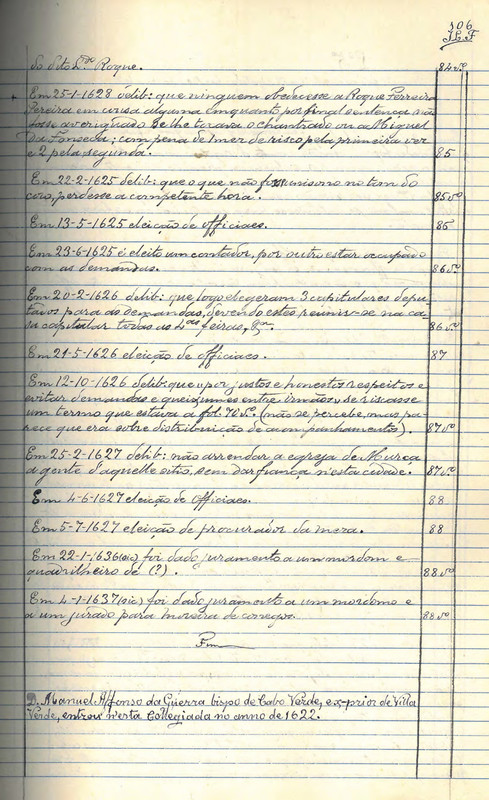 106
J.L.F
do dito L.do Roque. 84 vº
Em 25-1-1623 delib: que ninguem obedecesse a Roque Ferreira
Pereira em cousa alguma emquanto por final sentença não
fosse averiguado se lhe tocava o chantrado ou a Miguel
da Fonseca; com pena de mez de risco pela primeira vez
e 2 pela segunda. 85
Em 22-2-1625 delib: que o que não for unisono no tom do
coro, perdesse a competente hora. 85 vº
Em 13-5-1625 eleição de officiaes. 86
Em 23-6-1625 é eleito um contador, por outro estar occupado
com as demandas. 86 vº
Em 20-2-1626 delib: que logo elegeram 3 capitulares depu-
tados para as demandas, devendo estes reunir-se na ca-
sa capitular todas as 4.as feiras, &ª. 86 vº
Em 21-5-1626 eleição de officiaes. 87
Em 12-10-1626 delib: que "por justos e honestos respeitos e
evitar demandas e queixumes entre irmãos", se riscasse
um termo que estava a fol. 70 vº. (não se percebe, mas pa-
rece que era sobre distribuição de acompanhamentos). 87 vº
Em 25-2-1627 delib: não arrendar a egreja de Murça
a gente d'aquelle sitio, sem dar fiança n'esta cidade. 87 vº
Em 4-6-1627 eleição de officiaes. 88
Em 5-7-1627 eleição de procurador da meza. 88
Em 22-1-1636 (sic) foi dado juramento a um mordom e
quadrilheiro de (?). 88 vº
Em 4-1-1637 (sic) foi dado juramento a um mordomo e
a um jurado para Moreira de conegos. 88 vº
Fim
D. Manuel Affonso da Guerra bispo de Cabo Verde, ex-prior de Villa
Verde, entrou n'esta Collegiada no anno de 1622.